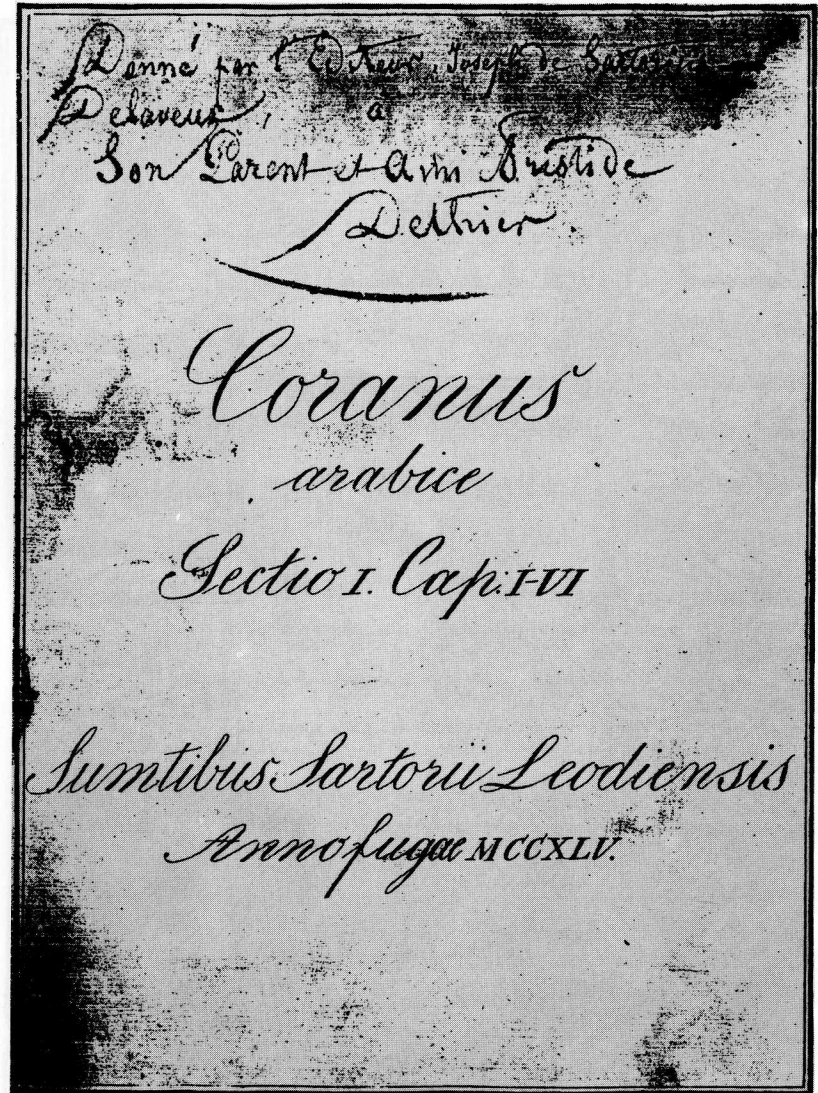 Donné par l'Editeur, Joseph de Sartorius
Delaveux, a
Son Parent et Ami Aristide
Dethier.
Coranus
arabice
Sectio I. Cap: I-VI
Sumtibus Sartorii Leodiensis
Anno fugae MCCXLV.